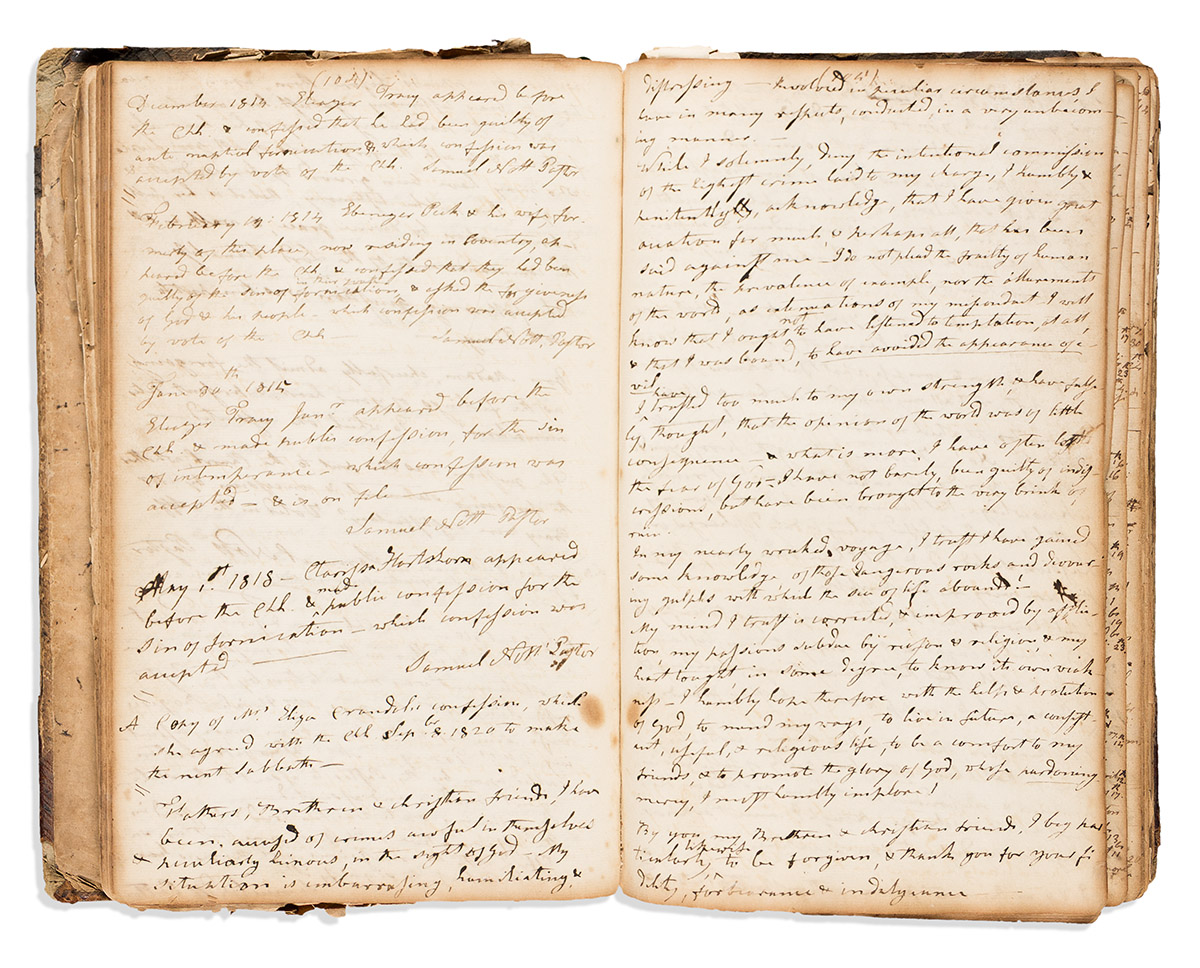 (104)
December 1813 Eleazer Tracy appeared before
the Chh. & confessed that he had been guilty of
ante nuptial fornication & which confession was
accepted by vote of the Chh. Samuel Nott Pastor
February 14: 1814 Ebenezer Peck & his wife, for-
merly of this place, now residing in Coventry ap-
peared before the Chh & confessed that they had been
guilty of the sin of fornication, & asked the forgiveness
of God & his people – which confession was accepted
by vote of the Chh Samuel Nott Pastor
June 30th 1815
Eleazer Tracy Junr appeared before the
Chh & made public confession, for the sin
of intemperance – which confession was
accepted – & is on file
Samuel Nott Pastor
May 1st 1818 – Clarissa Hartshorn appeared
before the Chh & made public confession for the
sin of fornication – which confession was
accepted Samuel Nott Pastor
A Copy of Mrs Eliza confession, which
she agreed with the Chh Sepbr 8 1820 to make
the next Sabbath –
Fathers, Brethren & christian friends, I have
been accused of crimes awful in themselves
& peculiarly heinous, in the sight of God – My
situation is embarrassing, humiliating &
distressing – Involved in peculiar circumstances I
have in many respects, conducted, in a very unbecom-
ing manner. –
While I solemnly, deny the intentional commission
of the highest crime laid to my charge, I humbly &
penitently, acknowledge, that I have given great
occasion for much, & perhaps all, that has been
said against me – I do not plead the frailty of human
nature, the prevalence of example, nor the allurements
of the world, as extenuations of my misconduct I well
know that I ought not to have listened to temptation at all,
& that I was bound, to have avoided the appearance of e-
vil
I have trusted too much to my own strength, & have false-
ly, thought, that the opinion of the world was of little
consequence – & what is more, I have often lost
the fear of God – I have not barely, been guilty of indis-
cressions, but have been brought to the very brink of
ruin.
In my nearly wrecked voyage, I trust I have gained
some knowledge, of those dangerous rocks and devour-
ing gulphs with which the sea of life abounds! –
My mind I trust is corrected, & improved by afflic-
tion, my passions subdued by reason & religion, & my
heart taught in some degree, to know its own weak-
ness – I humbly hope therefore with the help & protection
of God, to mend my ways, to live in future, a consist-
ent, useful, & religious life, to be a comfort to my
friends, & to promote the glory of God, whose pardoning
mercy, I most humbly implore!
By you, my Brethren & christian friends, I beg par-
ticularly, likewise to be forgiven, & thank you for your fi-
delity, forbearance & indulgence